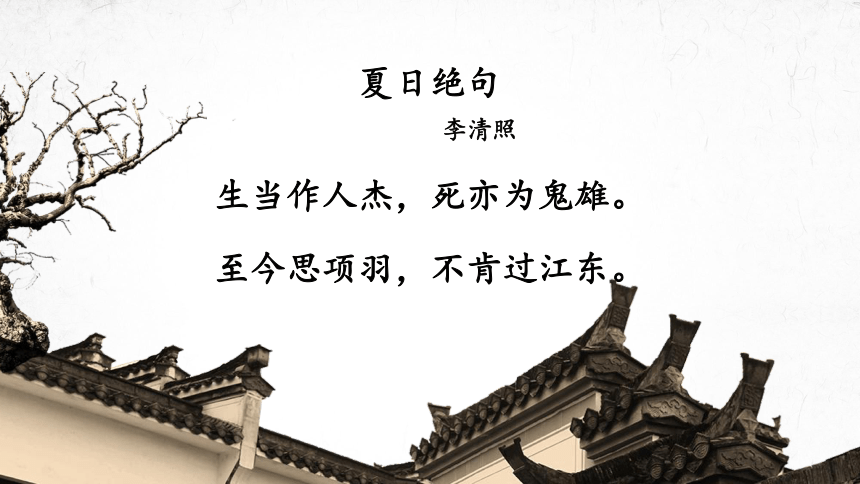 夏日绝句
李清照
生当作人杰，死亦为鬼雄。
至今思项羽，不肯过江东。